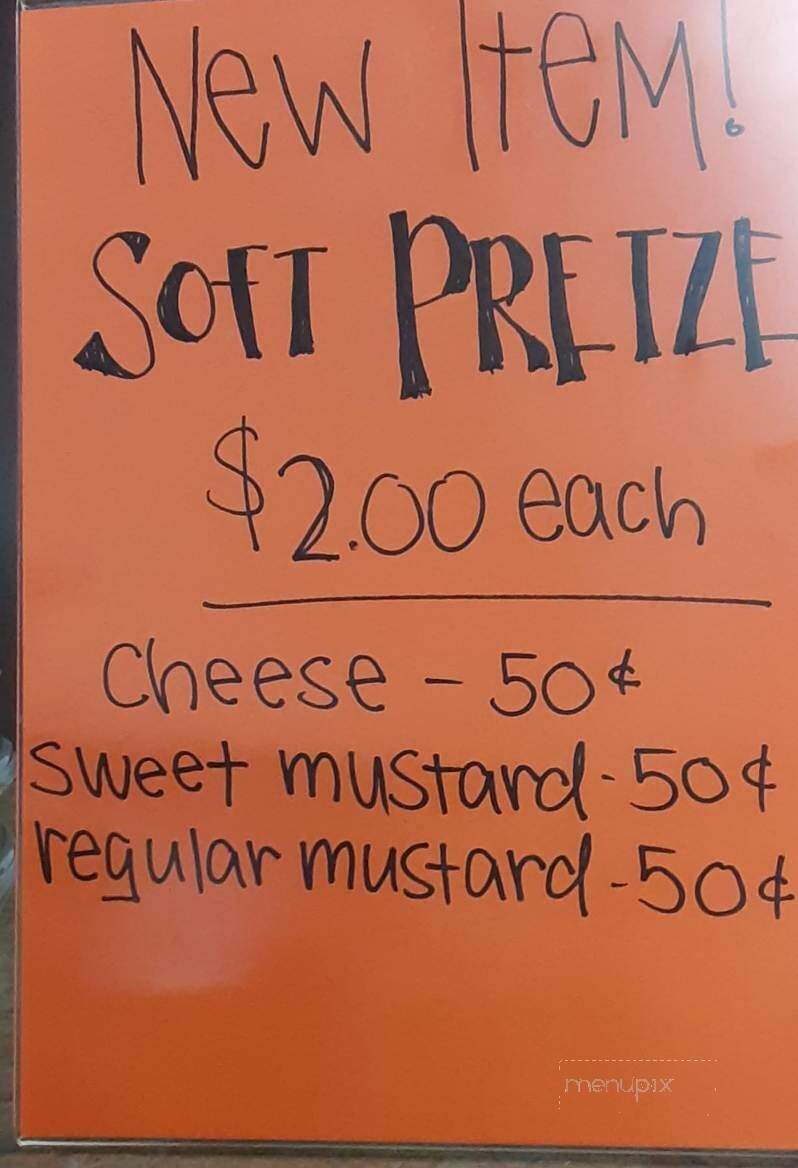 New Item!
SOFT PRETZE
$2.00 each
Cheese - 50¢
sweet mustard - 50¢
regular mustard - 50¢
menupix